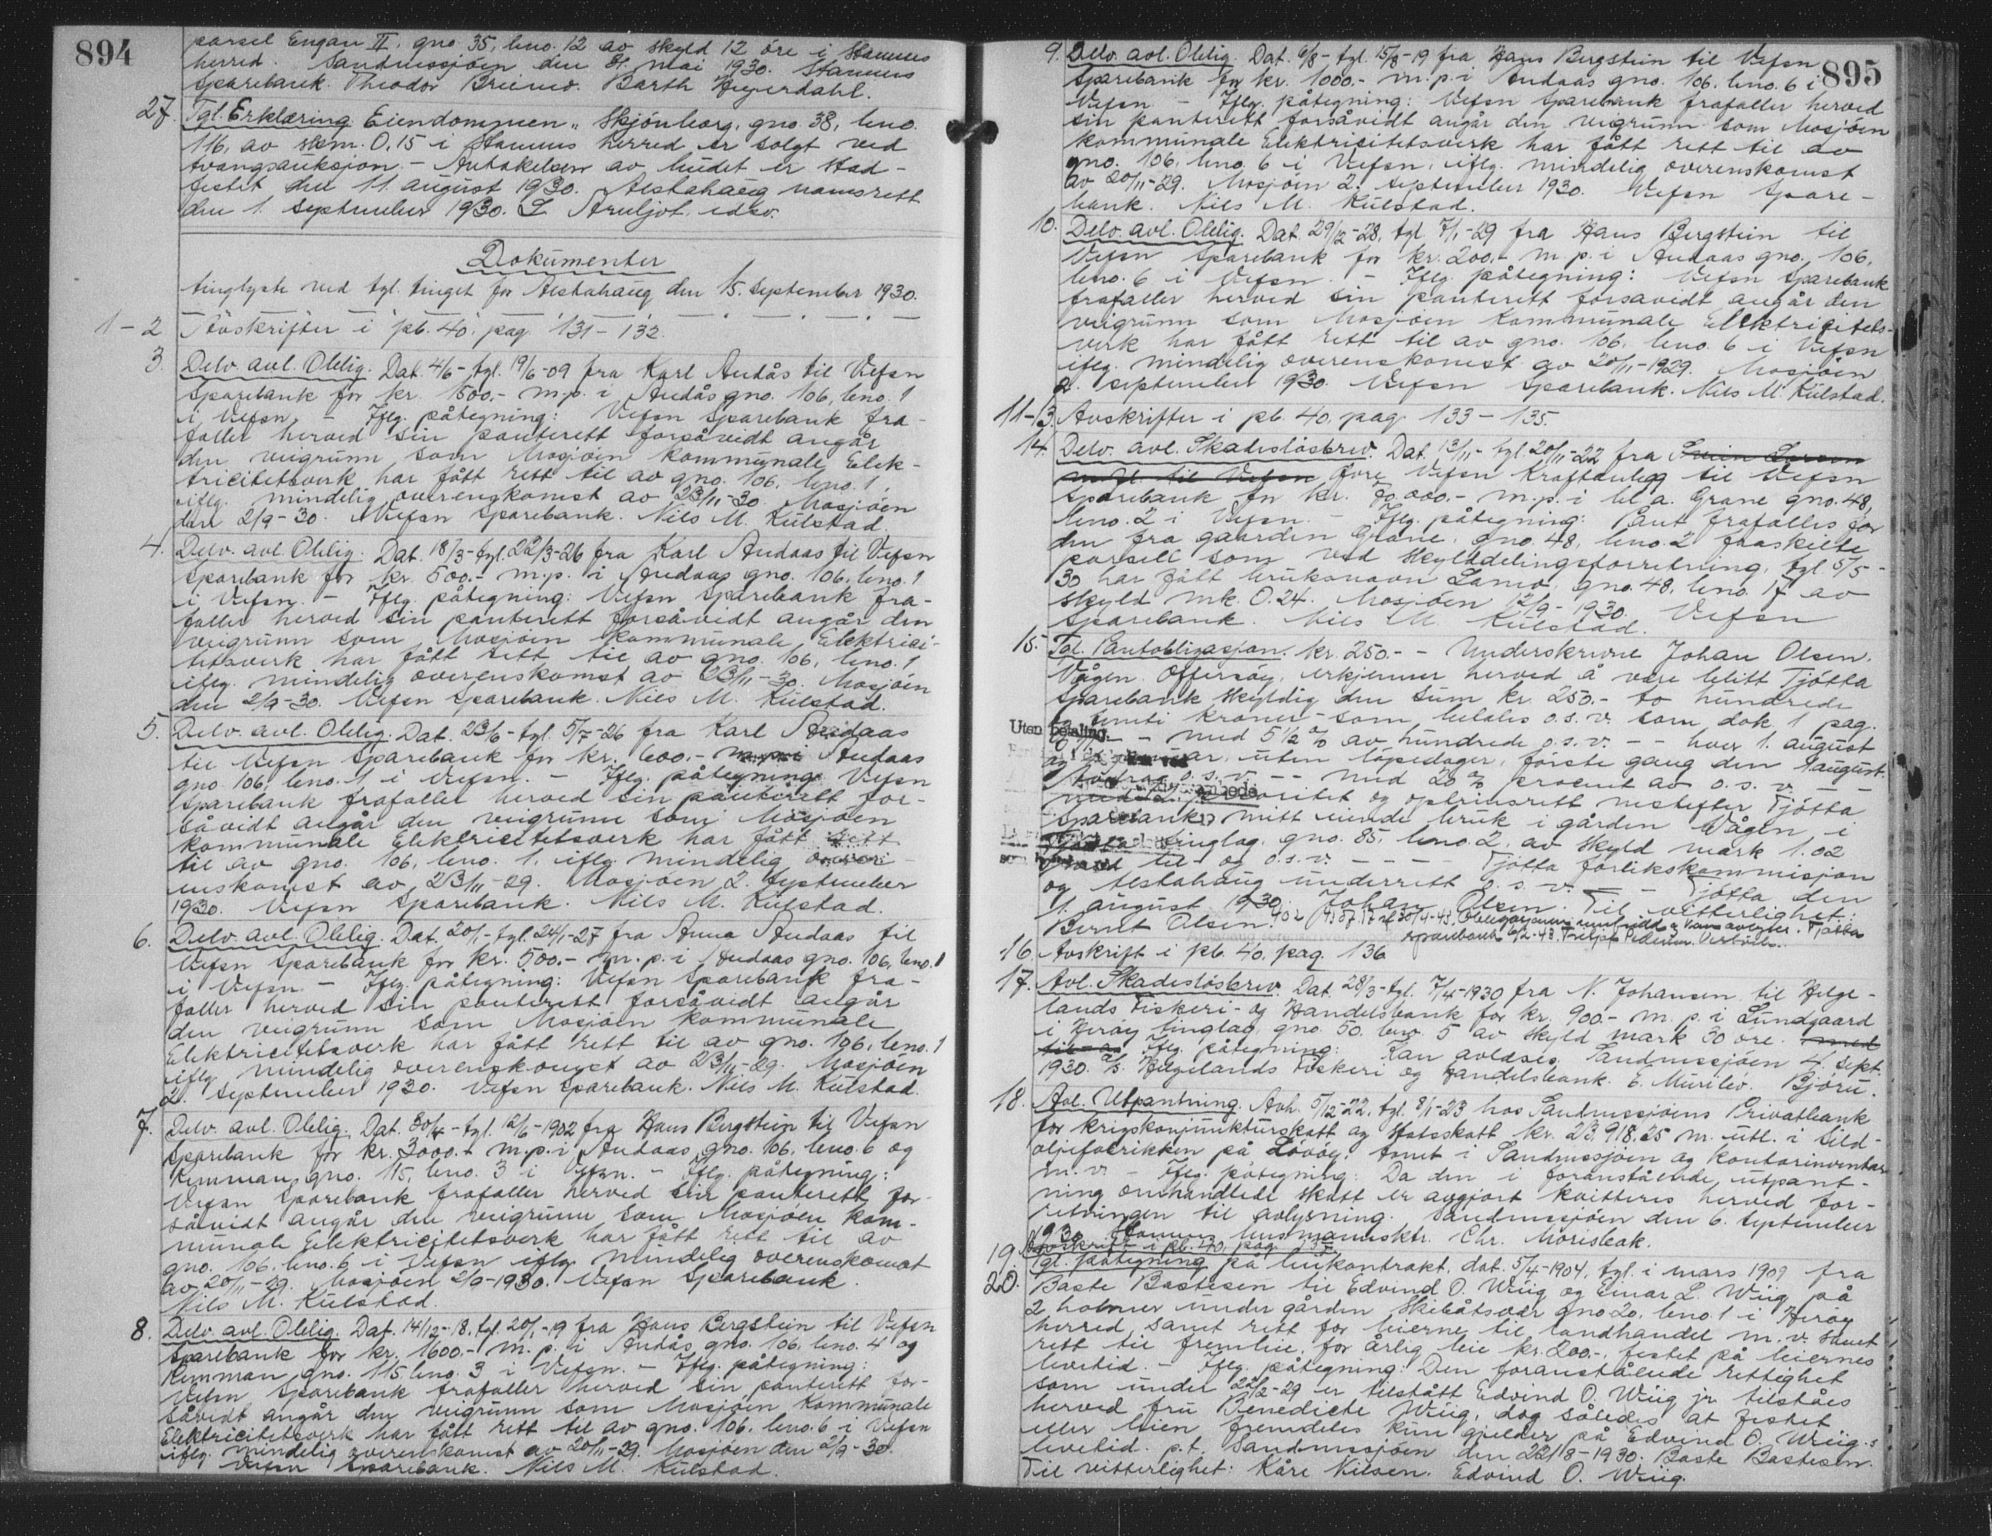 894
parsel Engan II, gno. 35, bno. 12 av skyld 12 öre i Stamnes
herred. Sandnessjöen den 31. mai 1930. Stamnes
Sparebank. Theodor Brinow. Barth Heyerdahl.
27. Tgl. Erklæring. Eiendommen „Skjönborg, gno. 38, bno.
116, av skm. 0.15 i Stamnes herred er solgt ved
tvangsauksjon. - Antakelsen av budet er stad-
festet den 11 august 1930. Alstahaug namsrett
den 1. september 1930. L. Arnljot.
Dokumenter
tinglyste ved tgl. tinget for Alstahaug den 15. september 1930.
1-2 Avskrifter i pb. 40. pag. 131-132.
3. Delv. avl. Oblig. Dat. 4/6 - tgl. 19/6-09 fra Karl Andås til Vefsn
Sparebank for kr. 1500.- m.p. i Andås gno. 106, bno. 1
i Vefsn. - Iflg. påtegning: Vefsn Sparebank fra-
faller herved sin panterett forsåvidt angår
den veigrunn som Mosjöen kommunale Elek-
tricitetsverk har fått rett til av gno. 106, bno. 1,
iflg. mindelig overenskomst av 23/11-30. Mosjöen
den 2/9-30. Vefsn Sparebank. Nils M. Kulstad.
4. Delv. avl. Oblig. Dat. 18/3 - tgl. 22/3-26 fra Karl Andaas til Vefsn
Sparebank for kr. 500.- m.p. i Andaas gno. 106, bno. 1
i Vefsn. - Iflg. påtegning: Vefsn Sparebank fra-
faller herved sin panterett forsåvidt angår den
veigrunn som Mosjöen kommunale Elektrici-
tetsverk har fått rett til av gno. 106, bno. 1
iflg. mindelig overenskomst av 23/11-30. Mosjöen
den 2/9-30. Vefsn Sparebank. Nils M. Kulstad.
5. Delv. avl. Oblig. Dat. 23/6 - tgl. 5/7-26 fra Karl Andaas
til Vefsn Sparebank for kr. 600.- m.p. i Andaas
gno. 106, bno. 1 i Vefsn. - Iflg. påtegning: Vefsn
Sparebank frafaller herved sin panterett for-
såvidt angår den veigrunn som Mosjöen
kommunale Elektricitetsverk har fått rett
til av gno. 106, bno. 1. iflg. mindelig over-
enskomst av 23/11-29. Mosjöen 2. september
1930. Vefsn Sparebank. Nils M. Kulstad.
6. Delv. avl. Oblig. Dat. 20/1 - tgl. 24/1-27 fra Anna Andaas til
Vefsn Sparebank for kr. 500.- m.p. i Andaas gno. 106, bno. 1
i Vefsn. - Iflg. påtegning: Vefsn Sparebank fra-
faller herved sin panterett forsåvidt angår
den veigrunn som Mosjöen kommunale
Elektricitetsverk har fått rett til av gno. 106, bno. 1
iflg. mindelig overenskomst av 23/11-29. Mosjöen
2. september 1930. Vefsn Sparebank. Nils M. Kulstad.
7. Delv. avl. Oblig. Dat. 30/4 - tgl. 12/6-1902 fra Hans Bergstein til Vefsn
Sparebank for kr. 3000.- m.p. i Andaas gno. 106, bno. 6 og
Remman gno. 115, bno. 3 i Vefsn. - Iflg. påtegning:
Vefsn Sparebank frafaller herved sin panterett for-
såvidt angår den veigrunn som Mosjöen kom-
munale Elektricitetsverk har fått rett til av
gno. 106, bno. 6 i Vefsn iflg. mindelig overenskomst
av 20/11-29. Mosjöen 2/9-1930. Vefsn Sparebank.
Nils M. Kulstad.
8. Delv. avl. Oblig. Dat. 14/12-18, tgl. 20/1-19 fra Hans Bergstein til Vefsn
Sparebank for kr. 1600.- m.p. i Andås gno. 106, bno. 4 og
Remman gno. 115, bno. 3 i Vefsn. - Iflg. påtegning:
Vefsn Sparebank frafaller herved sin panterett for-
såvidt angår den veigrunn som Mosjöen kommunale
Elektricitetsverk har fått rett til av gno. 106, bno. 6 i Vefsn
iflg. mindelig overenskomst av 20/11-29. Mosjöen den 2/9-30.
Vefsn Sparebank. Nils M. Kulstad.
895
9. Delv. avl. Oblig. Dat. 6/8 - tgl. 15/8-19 fra Hans Bergstein til Vefsn
Sparebank for kr. 1000.- m.p. i Andaas gno. 106, bno. 6 i
Vefsn - Iflg. påtegning: Vefsn Sparebank frafaller herved
sin panterett forsåvidt angår den veigrunn som Mosjöen
kommunale Elektricitetsverk har fått rett til av
gno. 106, bno. 6 i Vefsn, iflg. mindelig overenskomst
av 20/11-29. Mosjöen 2. september 1930. Vefsn Spare-
bank. Nils M. Kulstad.
10. Delv. avl. Oblig. Dat. 29/12-28, tgl. 7/1-29 fra Hans Bergstein til
Vefsn Sparebank for kr. 200.- m.p. i Andaas gno. 106,
bno. 6 i Vefsn. - Iflg. påtegning: Vefsn Sparebank
frafaller herved sin panterett forsåvidt angår den
veigrunn som Mosjöen kommunale Elektricitets-
verk har fått rett til av gno. 106, bno. 6 i Vefsn
iflg. mindelig overenskomst av 20/11-1929. Mosjöen
2. september 1930. Vefsn Sparebank. Nils M. Kulstad.
11-13. Avskrifter i pb. 40. pag. 133-135.
14. Delv. avl. Skadeslösbrev. Dat. 13/11 - tgl. 20/11-22 fra
til Vefsn Övre Vefsn Kraftanlegg til Vefsn
Sparebank for kr. 70,000.- m.p. i bl.a. Grane gno. 48,
bno. 2 i Vefsn. - Iflg. påtegning: Pant frafalles for
den fra gaarden Grane, gno. 48, bno. 2 fraskilte
parsell som ved skylddelingsforretning, tgl. 5/5-
30 har fått bruksnavn Lamo, gno. 48, bno. 17 av
skyld mk. 0.24. Mosjöen 12/9-1930. Vefsn
Sparebank. Nils M. Kulstad.
15. Tgl. Pantobligasjon. kr. 250.- - Underskrevne Johan Olsen.
Vågen. Offersöy, erkjenner herved å være blitt Tjötta
Sparebank skyldig den sum kr. 250.- to hundrede
og femti kroner - som betales o.s.v. som dok 1 pag.
- - med 5 1/2 % av hundrede o.s.v. - - hver 1. august
uten löpedager, förste gang den 1 august
o.s.v. - - med 20 % procent av o.s.v.
prioritet og optrinsrett nestefter Tjötta
Sparebank mitt eiende bruk i gården Vågen, i
tinglag, gno. 85, bno. 2, av skyld mark 1.02
til og o.s.v. - - - Tjötta forlikskommisjon
og Alstahaug underrett o.s.v. - Tjötta den
1. august 1930. Johan Olsen. Til vitterlighet:
Bernt Olsen.
Uten betaling.
16. Avskrift i pb. 40. pag. 136
17. Avl. Skadeslösbrev. Dat. 28/3 - tgl. 7/4-1930 fra N. Johansen til Helge-
lands Fiskeri- og Handelsbank for kr. 900.- m.p. i Lundgaard
i Heröy tinglag, gno. 50, bno. 5 av skyld mark 30 öre. med
Iflg. påtegning: Kan avlöses. Sandnessjöen 4. sept.
1930. A/S. Helgelands Fiskeri og Handelsbank. E. Björu.
18. Avl. Utpantning. Avh. 5/12-22, tgl. 8/1-23 hos Sandnessjöens Privatbank
for krigskonjunkturskatt og statsskatt kr. 23,918.25 m. utl. i sild-
oljefabrikken på Lövöy, tomt i Sandnessjöen og kontorinventar
m.v. - Iflg. påtegning: Da den i foranstående utpant-
ning omhandlede skatt er avgjort kvitteres herved for-
retningen til avlysning. Sandnessjöen den 6. september
1930. Stamnes lensmannsktr. Chr. Morisbak.
19. Avskrift i pb. 40, pag. 137.
20. Tgl. påtegning på leiekontrakt, dat. 5/4-1904, tgl. i mars 1909 fra
Baste Bastesen til Edvind O. Wiig og Einar L. Wiig på
2 holmer under gården Skibåtsvær gno. 20, bno. 1 i Heröy
herred samt rett for leierne til landhandel m.v. samt
rett til fremleie, for årlig leie kr. 200.-, festet på leiernes
levetid. - Iflg. påtegning: Den foranstående rettighet
som under 22/2-29 er tilstått Edvind O. Wiig jr. tilståes
herved fru Benedicte Wiig, dog således at festet
eller leien fremdeles kun gjelder på Edvind O. Wiig.s
levetid. p.t. Sandnessjöen den 22/8-1930. Baste Bastesen.
Til vitterlighet: Kåre Nilsen. Edvind O. Wiig.